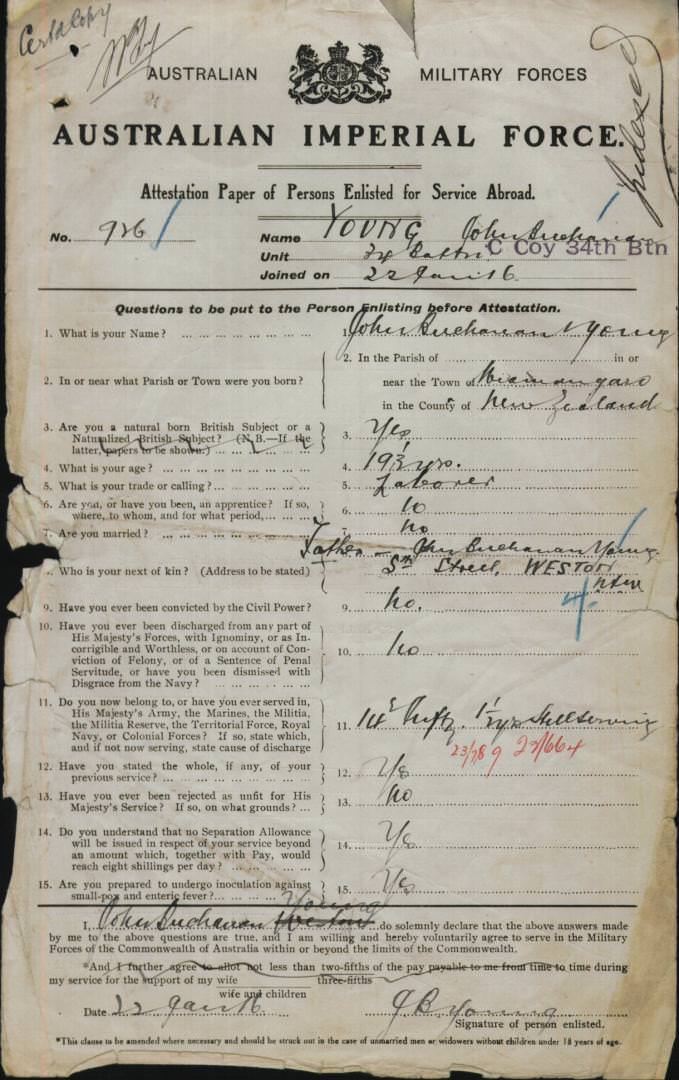 Certd Copy
AUSTRALIAN MILITARY FORCES
Indexed
AUSTRALIAN IMPERIAL FORCE.
Attestation Paper of Persons Enlisted for Service Abroad.
No. 926 Name YOUNG John Buchanan
Unit 34 Battn. C Coy 34th Btn
Joined on 22 Jan 16.
Questions to be put to the Person Enlisting before Attestation.
1. What is your Name? 1. John Buchanan Young
2. In or near what Parish or Town were you born? 2. In the Parish of in or
near the Town of
in the County of New Zealand
3. Are you a natural born British Subject or a
Naturalized British Subject? (N.B.—If the
latter, papers to be shown.) 3. Yes,
4. What is your age? 4. 19 yrs.
5. What is your trade or calling? 5. Laborer
6. Are you, or have you been, an apprentice? If so,
where, to whom, and for what period, 6. no
7. Are you married? 7. no
Father — John Buchanan Young
Who is your next of kin? (Address to be stated) 5th Street, WESTON
NSW
9. Have you ever been convicted by the Civil Power? 9. no.
10. Have you ever been discharged from any part of
His Majesty's Forces, with Ignominy, or as In-
corrigible and Worthless, or on account of Con-
viction of Felony, or of a Sentence of Penal
Servitude, or have you been dismissed with
Disgrace from the Navy? 10. no
11. Do you now belong to, or have you ever served in,
His Majesty's Army, the Marines, the Militia,
the Militia Reserve, the Territorial Force, Royal
Navy, or Colonial Forces? If so, state which,
and if not now serving, state cause of discharge 11. 14 Inftz. 1½ yrs Still serving
12. Have you stated the whole, if any, of your
previous service? 12. Yes
13. Have you ever been rejected as unfit for His
Majesty's Service? If so, on what grounds? 13. no
14. Do you understand that no Separation Allowance
will be issued in respect of your service beyond
an amount which, together with Pay, would
reach eight shillings per day? 14. Yes
15. Are you prepared to undergo inoculation against
small-pox and enteric fever? 15. Yes
Young
I, John Buchanan Weston do solemnly declare that the above answers made
by me to the above questions are true, and I am willing and hereby voluntarily agree to serve in the Military
Forces of the Commonwealth of Australia within or beyond the limits of the Commonwealth.
*And I further agree to allot not less than two-fifths of the pay payable to me from time to time during
three-fifths
my service for the support of my wife
wife and children
Date 22 Jan 16. J B Young
Signature of person enlisted.
*This clause to be amended where necessary and should be struck out in the case of unmarried men or widowers without children under 18 years of age.